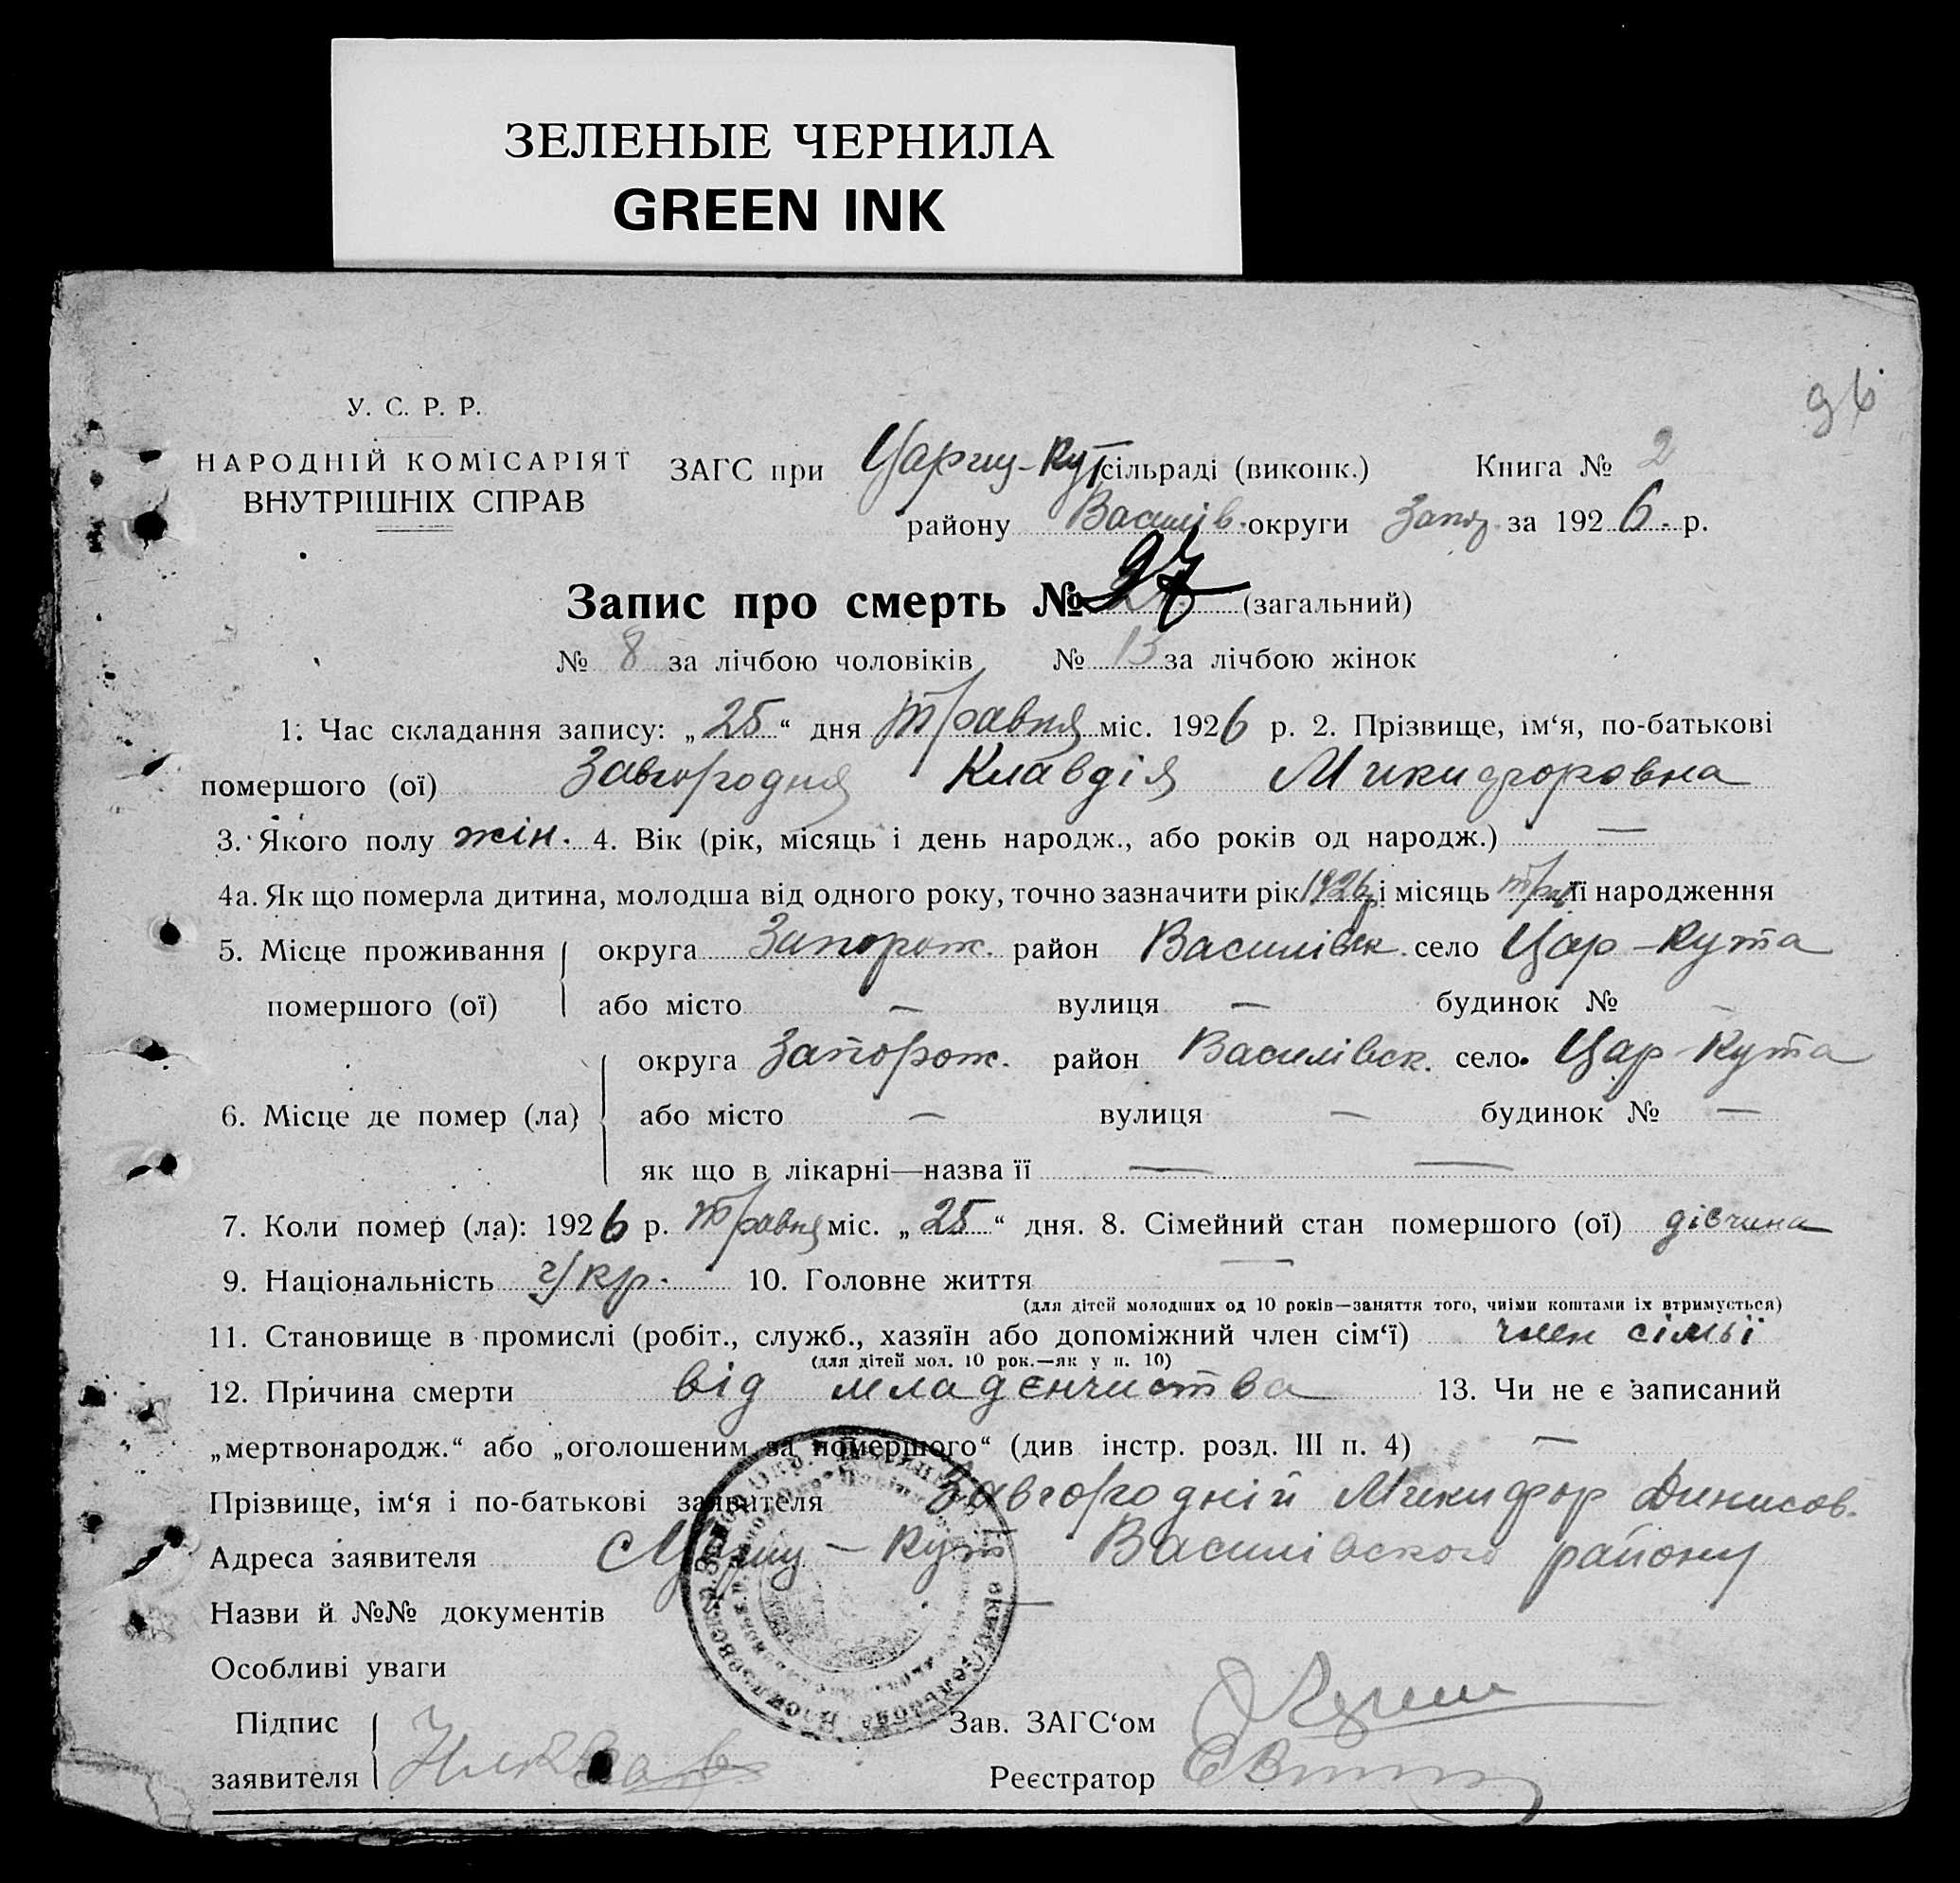 ЗЕЛЕНЫЕ ЧЕРНИЛА
GREEN INK
96
У. С. Р. Р.
НАРОДНІЙ КОМІСАРІЯТ
ВНУТРІШНІХ СПРАВ
ЗАГС при Царицу-Кут сільраді (виконк.) Книга № 2
району Василів. округи Запор. за 1926. р.
Запис про смерть № 27 (загальний)
№ 8 за лічбою чоловіків № 13 за лічбою жінок
1. Час складання запису: „25“ дня травня міс. 1926 р. 2. Прізвище, ім‘я, по-батькові
помершого (ої) Завгородня Клавдія Микифоровна
3. Якого полу жін. 4. Вік (рік, місяць і день народж., або років од народж.) —
4а. Як що померла дитина, молодша від одного року, точно зазначити рік 1926 р і місяць трав її народження
5. Місце проживання помершого (ої) округа Запорож. район Василівск. село Цар-Кута
або місто — вулиця — будинок № —
6. Місце де помер (ла) округа Запорож. район Василівск. село Цар-Кута
або місто — вулиця — будинок № —
як що в лікарні—назва її — —
7. Коли помер (ла): 1926 р. травня міс. „25“ дня. 8. Сімейний стан помершого (ої) дівчина
9. Національність Укр. 10. Головне життя —
(для дітей молодших од 10 років—заняття того, чиїми коштами їх втримується)
11. Становище в промислі (робіт., служб., хазяїн або допоміжний член сім‘ї) член сімьї
(для дітей мол. 10 рок.—як у п. 10)
12. Причина смерти від младенчиства 13. Чи не є записаний
„мертвонародж.“ або „оголошеним за помершого“ (див інстр. розд. III п. 4) —
Прізвище, ім‘я і по-батькові заявителя Завгородній Микифор Динисов.
Адреса заявителя Кут Василівского району
Назви й №№ документів —
Особливі уваги
Підпис заявителя
Зав. ЗАГС‘ом
Реєстратор